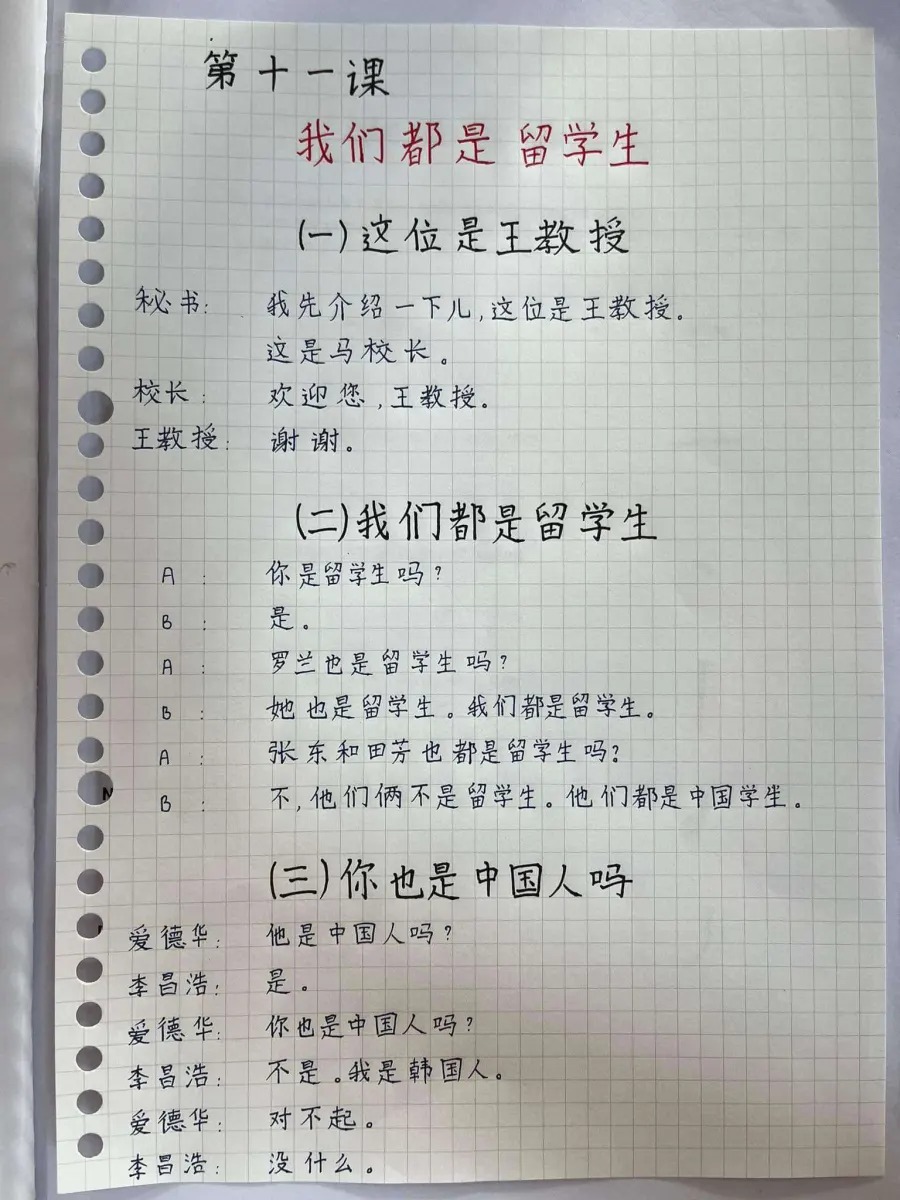 第十一课
我们都是留学生
(一)这位是王教授
秘书: 我先介绍一下儿,这位是王教授。
这是马校长。
校长: 欢迎您,王教授。
王教授: 谢谢。
(二)我们都是留学生
A: 你是留学生吗?
B: 是。
A: 罗兰也是留学生吗?
B: 她也是留学生。我们都是留学生。
A: 张东和田芳也都是留学生吗?
B: 不,他们俩不是留学生。他们都是中国学生。
(三)你也是中国人吗
爱德华: 他是中国人吗?
李昌浩: 是。
爱德华: 你也是中国人吗?
李昌浩: 不是。我是韩国人。
爱德华: 对不起。
李昌浩: 没什么。